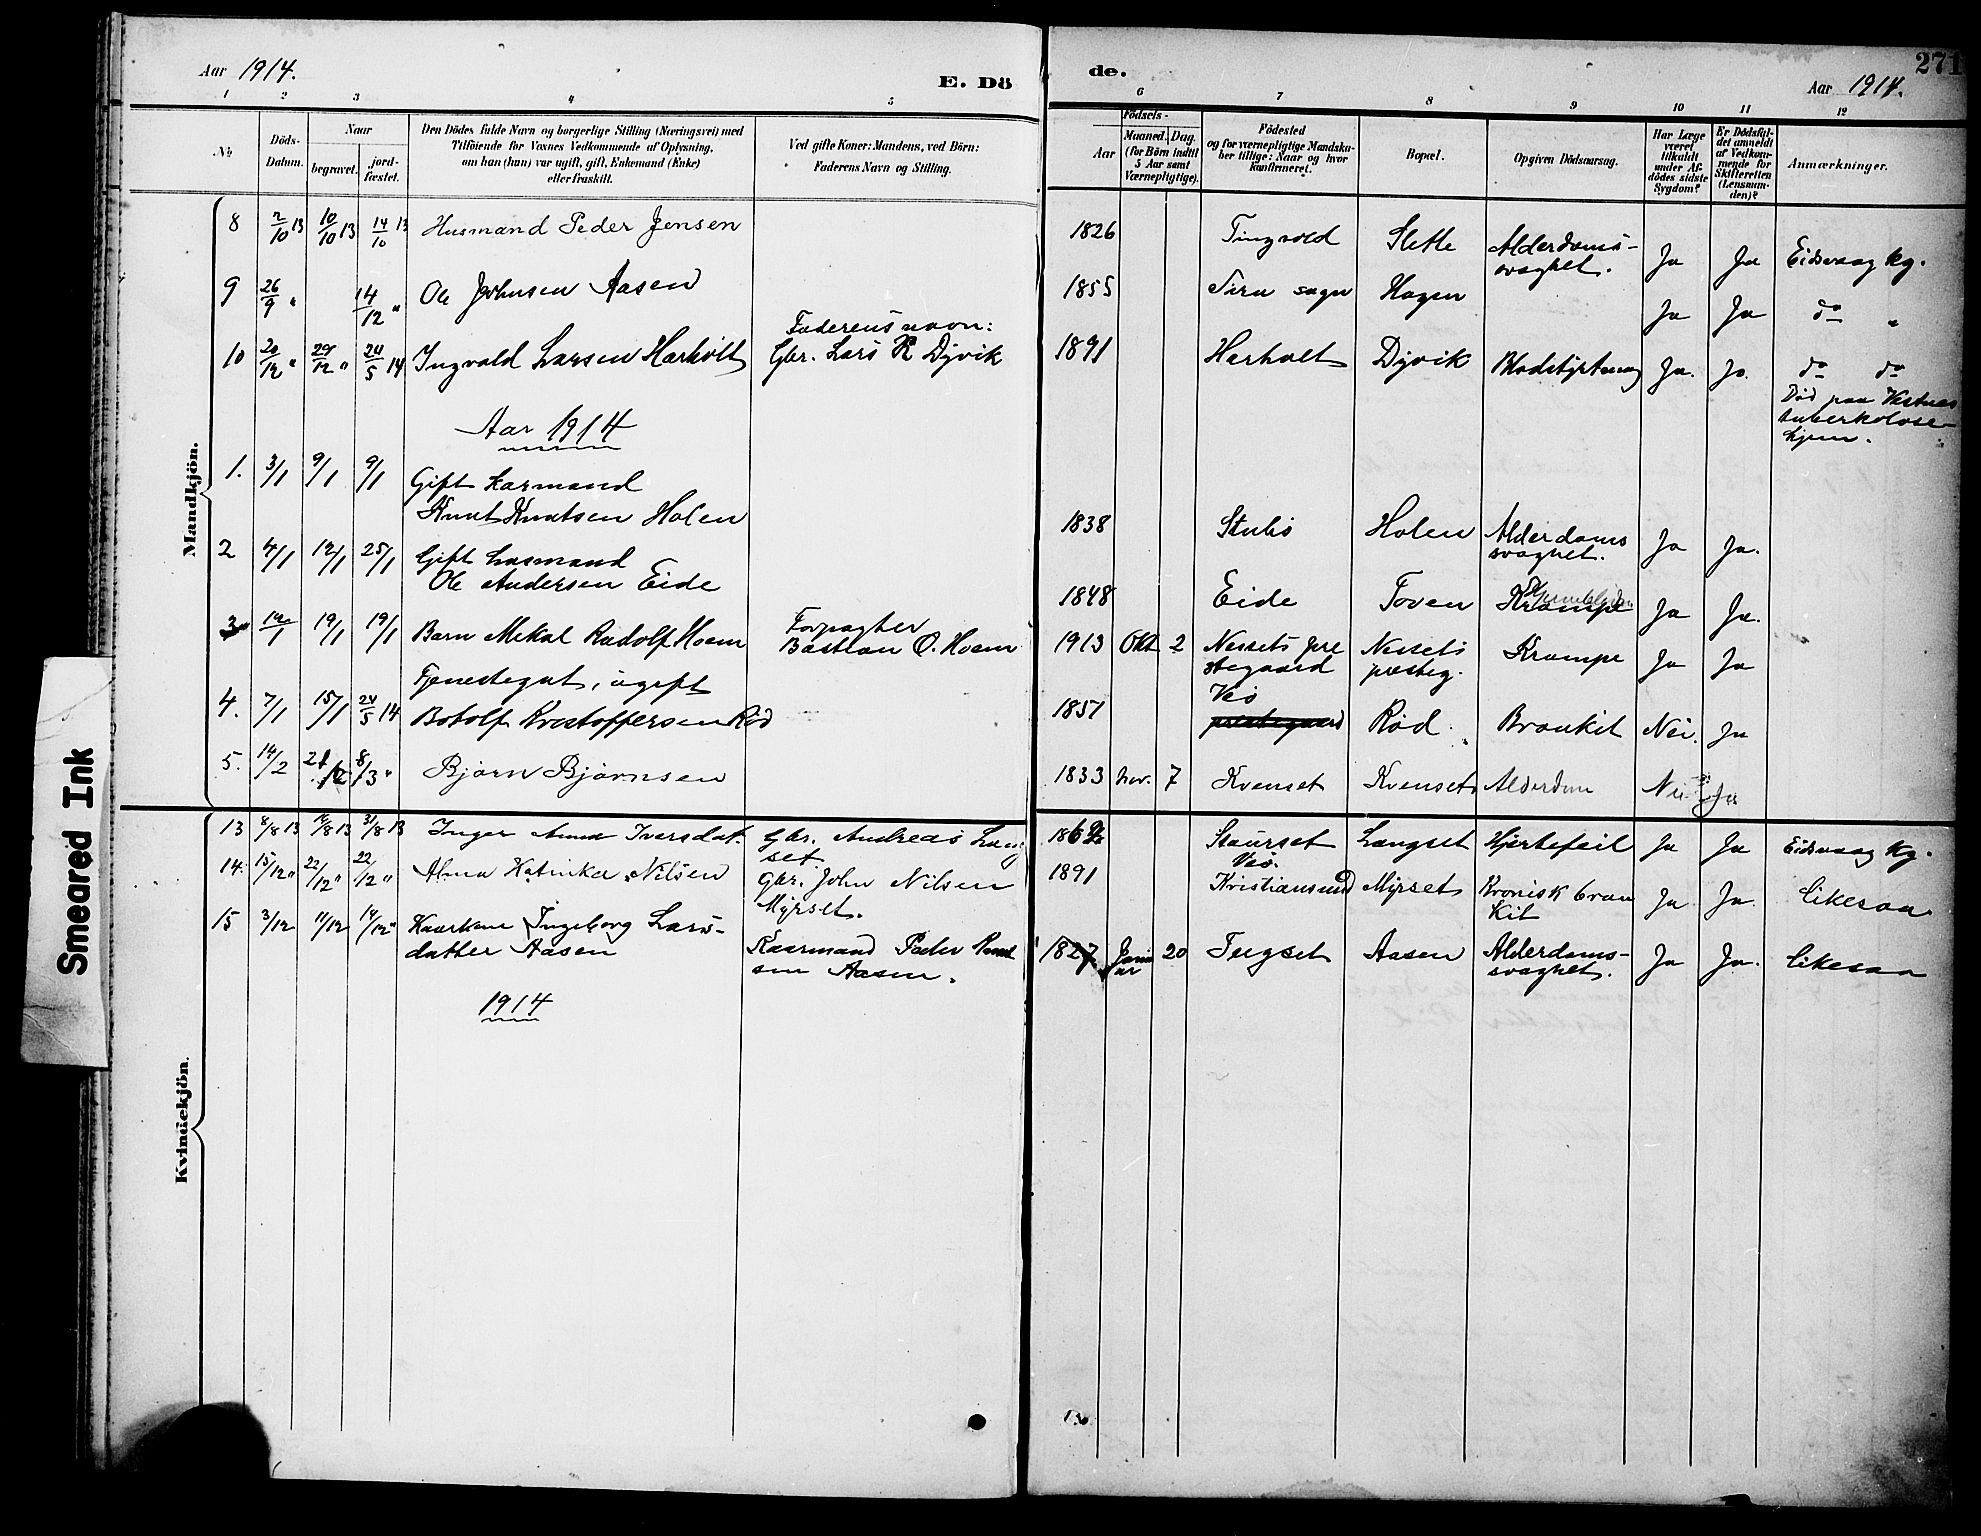 Aar 1914.
E. Dö
de.
271
Aar 1914.
1 2 3 4 5 6 7 8 9 10 11 12
No
Döds-
Datum.
Naar
begravet.
jord-
fæstet.
Den Dödes fulde Navn og borgerlige Stilling (Næringsvei) med
Tilföiende for Voxnes Vedkommende af Oplysning,
om han (hun) var ugift, gift, Enkemand (Enke)
eller fraskilt.
Ved gifte Koner: Mandens, ved Börn:
Faderens Navn og Stilling.
Födsels-
Aar
Maaned.
Dag.
(for Börn indtil
5 Aar samt
Værnepligtige).
Födested
og for værnepligtige Mandska-
ber tillige: Naar og hvor
konfirmeret.
Bopæl.
Opgiven Dödsaarsag.
Har Læge
været
tilkaldt
under Af-
dödes sidste
Sygdom?
Er Dödsfal-
det anmeldt
af Vedkom-
mende for
Skifteretten
(Lensman-
den)?
Anmærkninger.
Mandkjön.
8 2/10 13 10/10 13 14/10 13 Husmand Peder Jensen 1826 Tingvold Slette Alderdoms-
svaghet. Ja Ja Eidsvaag kg.
9 26/9 " 14/12 " Ole Johnsen Aasen 1855 Sira sogn Hagen Ja Ja do "
Faderens navn:
10 20/12 " 29/12 " 24/5 14 Ingvald Larsen Harholt Gbr. Lars R Dyvik 1891 Harholt Dyvik Blodstyrtning Ja. Ja. do do
Död paa Vestnes
tuberkolose-
hjem.
Aar 1914
1. 3/1 9/1 9/1 Gift karmand
Knut Knutsen Holen 1838 Stubö Holen Alderdoms
svaghet. Ja Ja.
2 4/1 12/1 25/1 Gift husmand
Ole Andersen Eide 1848 Eide Toven Krampe Ja Ja.
3 12/1 19/1 19/1 Barn Mekal Rudolf Hoem Forpagter
Bastian O. Hoem 1913 Okt 2 Nessets pre
stegaard Nessets
prestg. Krampe Ja Ja
Tjenestegut, ugift
4. 7/1 15/1 24/5 14 Botolf Kristoffersen Rød 1851 Veö
prestegaard Rød. Bronkit Nei. Ja
5. 14/2 21/2 8/3 " Bjørn Bjørnsen 1833 nov. 7 Kvenset Kvenset Alderdom Nei Ja
Kvindekjön.
13 8/8 13 14/8 13 31/8 13 Inger Anna Iversdat. Gbr. Andreas Lang
set 1862 Staurset
Veö. Langset Hjertefeil Ja Ja Eidsvaag kg.
14. 15/12 " 22/12 " 22/12 " Alma Katinka Nilsen Gbr. John Nilsen
Myrset. 1891 Kristiansund Myrset Kronisk bron
kit Ja Ja. likesaa
15 3/12 11/12 14/12 " Kaarkone Ingeborg Lars-
datter Aasen Kaarmand Peder Knut
sen Aasen. 1827 Janu
ar 20 Tugset Aasen Alderdoms-
svaghet. Ja Ja. likesaa
1914
Smeared Ink